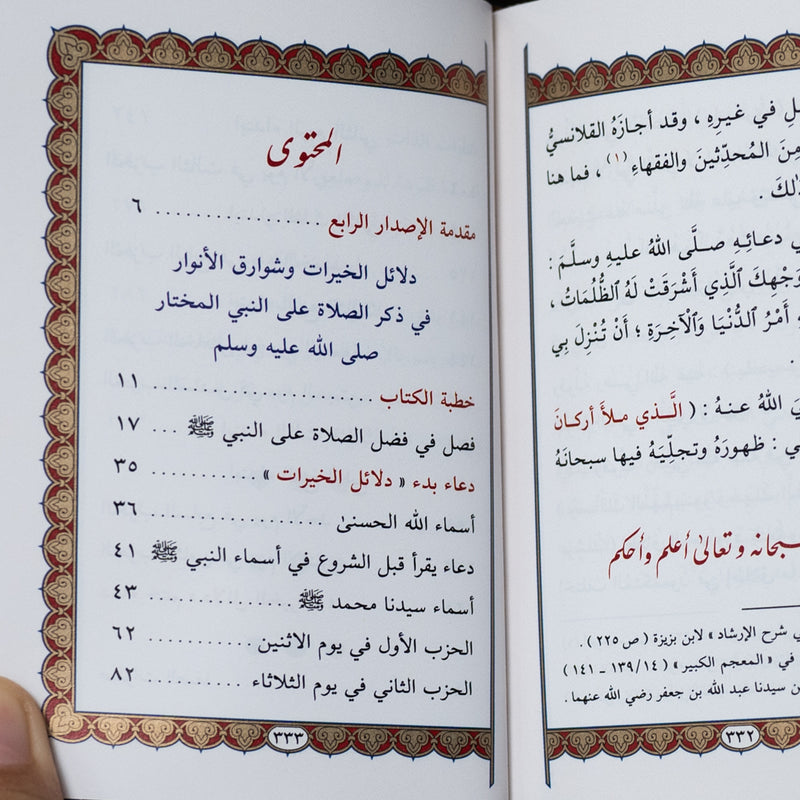 ل في غيرِهِ ، وقد أجازَهُ القلانسيُّ
مِنَ المُحدِّثينَ والفقهاءِ (١) ، فما هنا
ذٰلكَ .
ي دعائِهِ صلَّى اللهُ عليهِ وسلَّمَ :
وَجْهِكَ ٱلَّذِي أَشْرَقَتْ لَهُ ٱلظُّلُمَاتُ ،
أَمْرُ ٱلدُّنْيَا وَٱلْآخِرَةِ ؛ أَنْ تُنْزِلَ بِي
يَ اللهُ عنهُ : ( الَّذي ملأَ أركانَ
ي : ظهورَهُ وتجلِّيَهُ فيها سبحانَهُ
سبحانه وتعالىٰ أعلم وأحكم
ي شرح الإرشاد » لابن بزيزة ( ص ٢٢٥ ) .
في « المعجم الكبير » ( ١٤/ ١٣٩ ـ ١٤١ )
ن سيدنا عبد الله بن جعفر رضي الله عنهما .
٣٣٢
المحتوى
مقدمة الإصدار الرابع .................. ٦
دلائل الخيرات وشوارق الأنوار
في ذكر الصلاة على النبي المختار
صلى الله عليه وسلم
خطبة الكتاب ......................... ١١
فصل في فضل الصلاة على النبي ﷺ ... ١٧
دعاء بدء « دلائل الخيرات » ........... ٣٥
أسماء الله الحسنىٰ ................... ٣٦
دعاء يقرأ قبل الشروع في أسماء النبي ﷺ ٤١
أسماء سيدنا محمد ﷺ ............... ٤٣
الحزب الأول في يوم الاثنين ............ ٦٢
الحزب الثاني في يوم الثلاثاء .......... ٨٢
٣٣٣